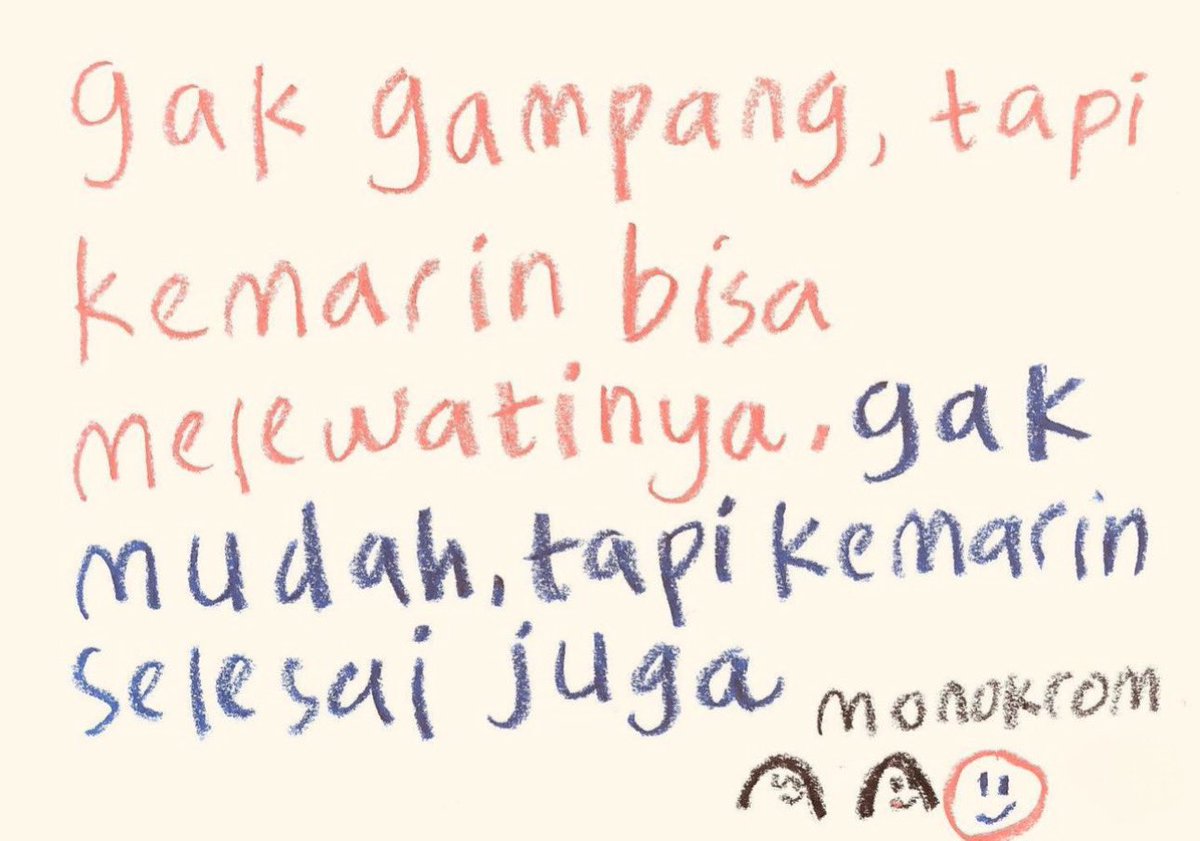 gak gampang, tapi
kemarin bisa
melewatinya. gak
mudah, tapi kemarin
selesai juga
monokrom